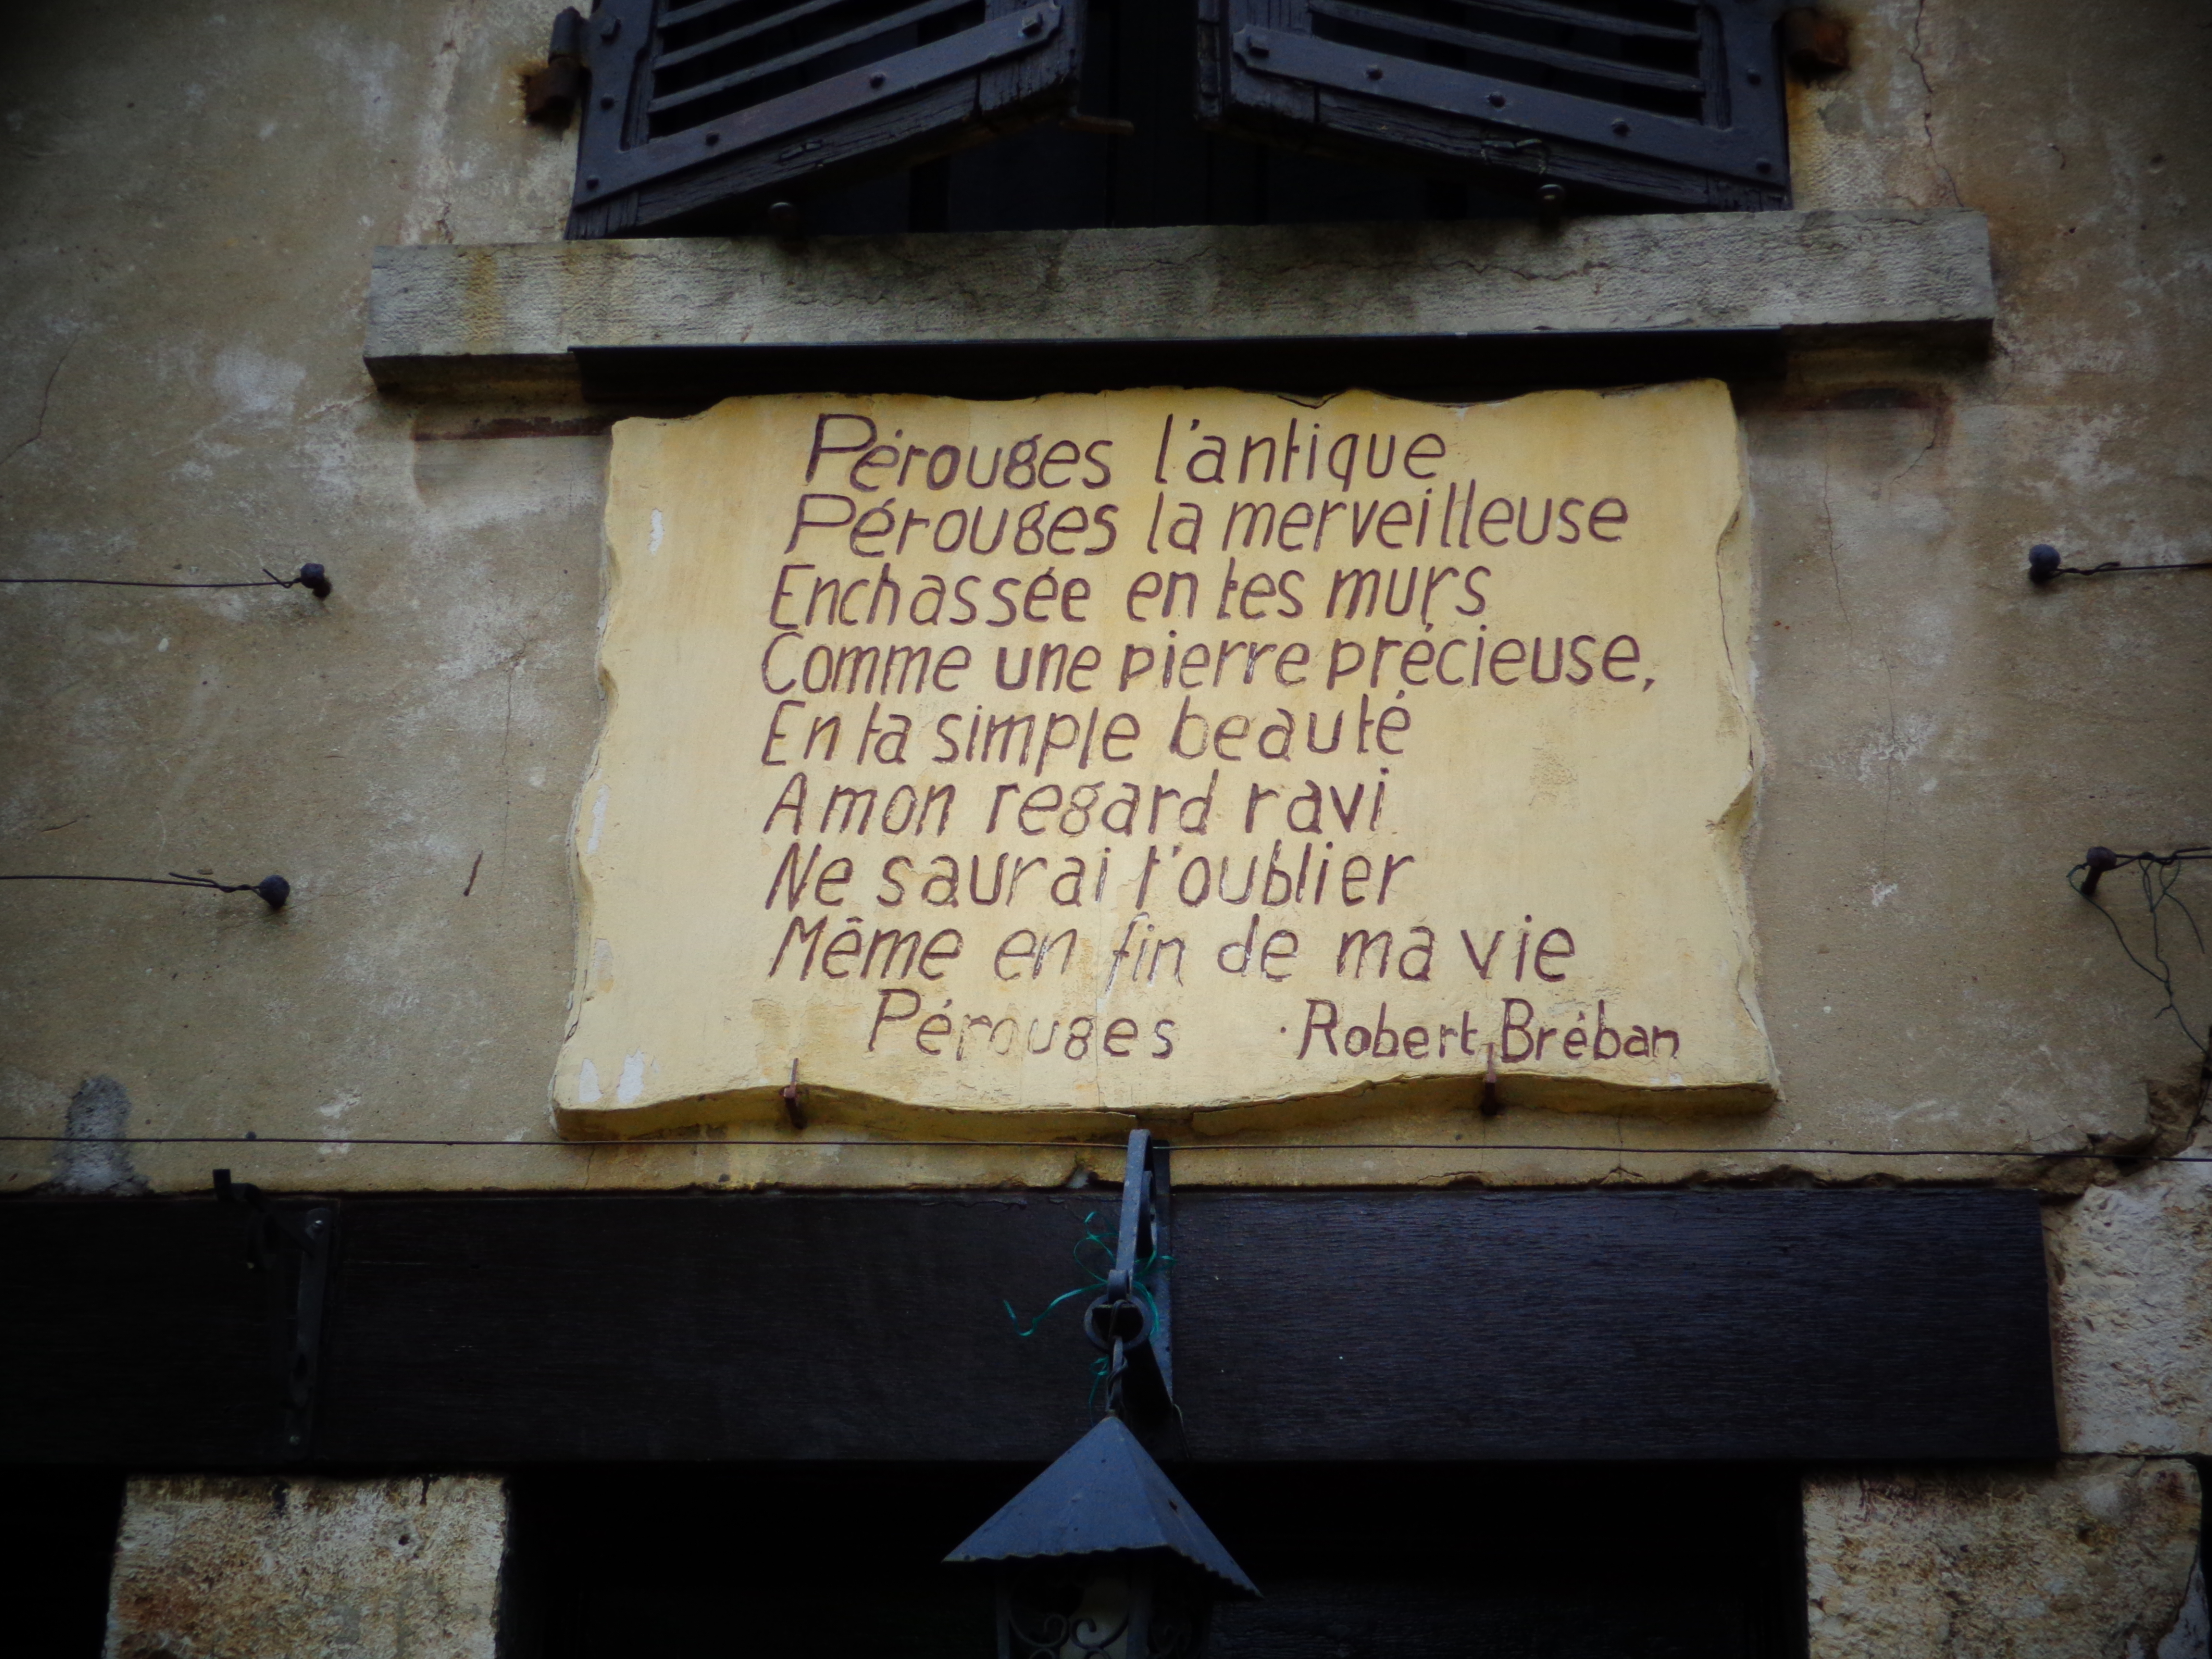 Pérouges l'antique
Pérouges la merveilleuse
Enchassée en tes murs
Comme une pierre précieuse,
En ta simple beauté
A mon regard ravi
Ne saurai t'oublier
Même en fin de ma vie
Pérouges · Robert Bréban